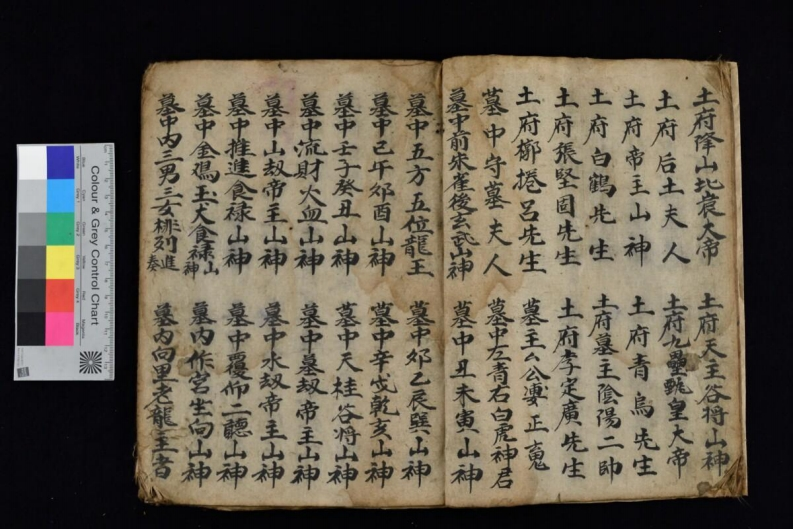 土府降山北袁大帝 土府天王谷将山神
土府后土夫人 土府九壘甦皇大帝
土府帝主山神 土府青烏先生
土府白鶴先生 土府墓主陰陽二帥
土府張堅固先生 土府李定廣先生
土府槨捲吕先生 墓主厶公婆正䰟
墓中守墓夫人 墓中左青右白虎神君
墓中前朱雀後玄武山神 墓中丑未寅山神
墓中五方五位龍王 墓中卯乙辰巽山神
墓中己午卯酉山神 墓中辛戌乾亥山神
墓中壬子癸丑山神 墓中天桂谷将山神
墓中流財火血山神 墓中墓刼帝主山神
墓中山刼帝主山神 墓中水刼帝主山神
墓中推進食禄山神 墓中覆仰二聽山神
墓中金鴉玉犬食禄山神 墓内作穴坐向山神
墓中内三男三女排列進奏 墓内向里老龍主吉
Colour & Grey Control Chart